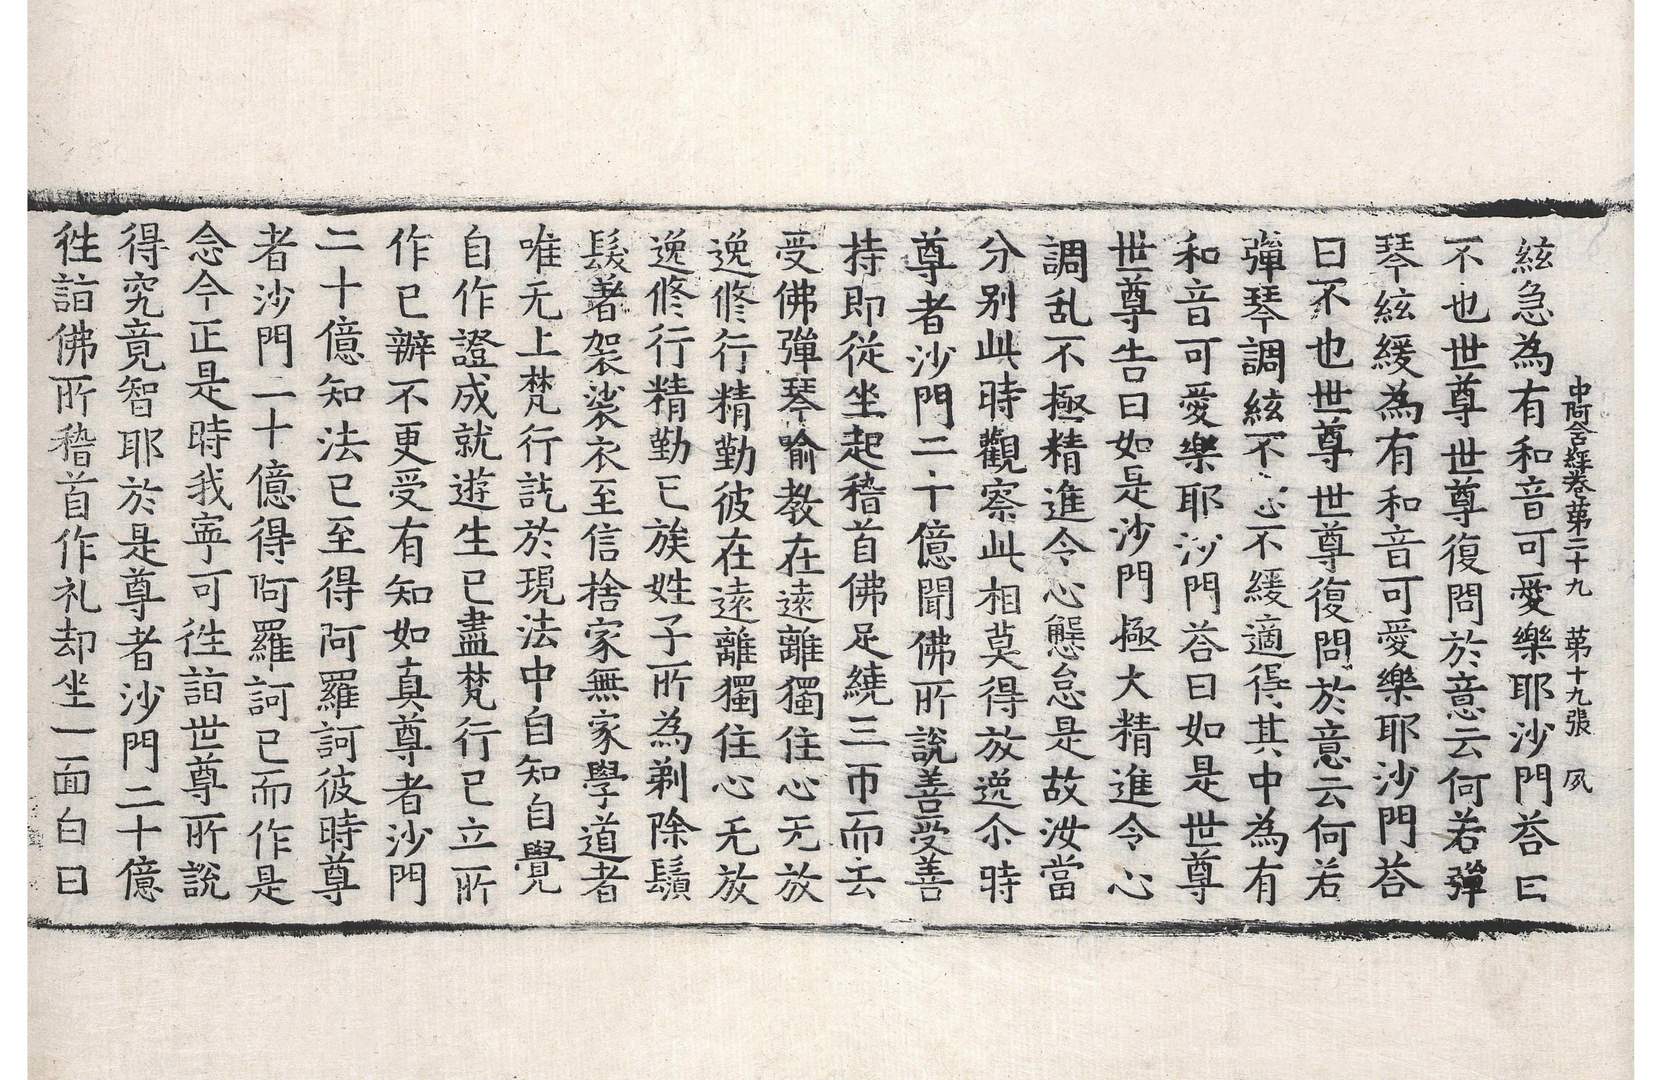 中阿含經卷第二十九　第十九張　夙
絃急為有和音可愛樂耶沙門荅曰
不也世尊世尊復問於意云何若彈
琴絃緩為有和音可愛樂耶沙門荅
曰不也世尊世尊復問於意云何若
彈琴調絃不急不緩適得其中為有
和音可愛樂耶沙門荅曰如是世尊
世尊告曰如是沙門極大精進令心
調乱不極精進令心懈怠是故汝當
分別此時觀察此相莫得放逸尒時
尊者沙門二十億聞佛所說善受善
持即從坐起稽首佛足繞三帀而去
受佛彈琴喻教在遠離獨住心无放
逸修行精勤彼在遠離獨住心无放
逸修行精勤已族姓子所為剃除鬚
髮著袈裟衣至信捨家無家學道者
唯无上梵行訖於現法中自知自覺
自作證成就遊生已盡梵行已立所
作已辦不更受有知如真尊者沙門
二十億知法已至得阿羅訶彼時尊
者沙門二十億得阿羅訶已而作是
念今正是時我寧可往詣世尊所說
得究竟智耶於是尊者沙門二十億
往詣佛所稽首作礼却坐一面白曰